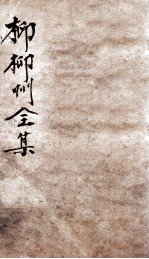 柳柳州全集